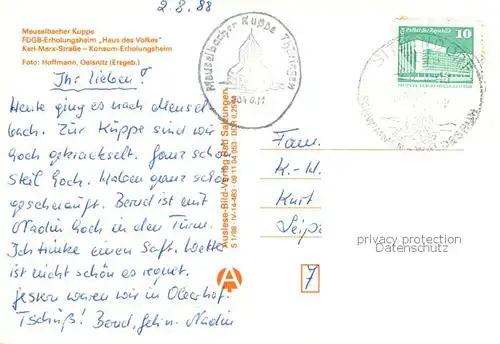 2.8.88
Meuselbacher Kuppe
FDGB-Erholungsheim „Haus des Volkes"
Karl-Marx-Straße – Konsum-Erholungsheim
Foto: Hoffmann, Oelsnitz (Erzgeb.)
Ihr lieben!
Heute ging es nach Meusel-
bach. Zur Kuppe sind wir
hoch gekrackselt. Ganz schön
steil hoch. Haben ganz schön
geschnauft. Bernd ist mit
Nadin hoch in den Turm.
Ich trinke einen Saft. Wetter
ist nicht schön es regnet.
gestern waren wir in Oberhof.
Tschüß! Bernd, Nadin
Meuselbacher Kuppe Thüringen
Auslese-Bild-Verlag Bad Salzungen
10
Fam.
K.-H.
Kurt
Leipz
7
privacy protection
Datenschutz